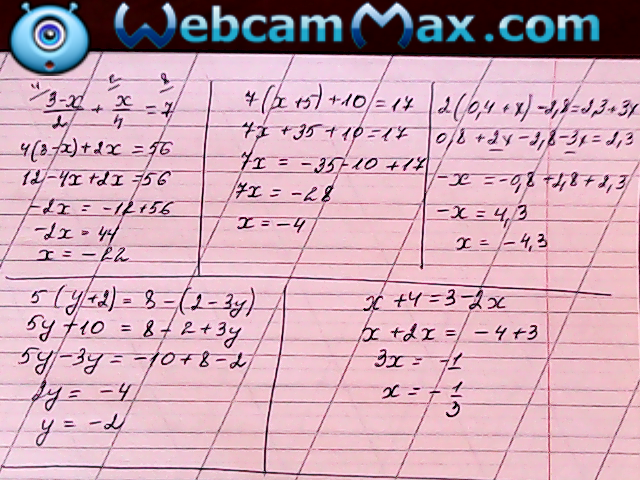 WebcamMax.com
4 2 8
(3-x)/2 + x/4 = 7
4(3-x)+2x = 56
12-4x+2x = 56
-2x = -12+56
-2x = 44
x = -22
7(x+5)+10 = 17
7x+35+10 = 17
7x = -35-10+17
7x = -28
x = -4
2(0,4+x)-2,8=2,3+3x
0,8+2x-2,8-3x=2,3
-x = -0,8+2,8+2,3
-x = 4,3
x = -4,3
5(y+2) = 8-(2-3y)
5y+10 = 8-2+3y
5y-3y = -10+8-2
2y = -4
y = -2
x+4=3-2x
x+2x = -4+3
3x = -1
x = -1/3